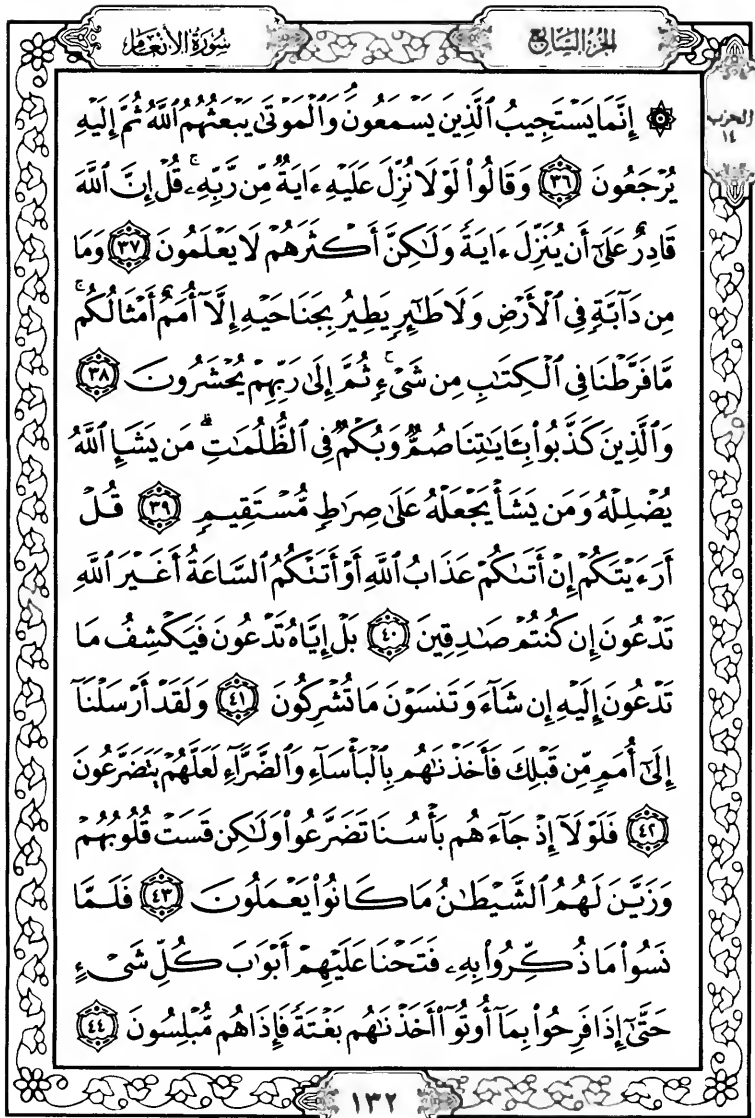 سُورَةُ الأَنْعَامِ
الجُزْءُ السَّابِعُ
الحزب
١٤
۞ إِنَّمَا يَسْتَجِيبُ ٱلَّذِينَ يَسْمَعُونَۘ وَٱلْمَوْتَىٰ يَبْعَثُهُمُ ٱللَّهُ ثُمَّ إِلَيْهِ
يُرْجَعُونَ ٣٦ وَقَالُوا۟ لَوْلَا نُزِّلَ عَلَيْهِ ءَايَةٌ مِّن رَّبِّهِۦۚ قُلْ إِنَّ ٱللَّهَ
قَادِرٌ عَلَىٰٓ أَن يُنَزِّلَ ءَايَةً وَلَـٰكِنَّ أَكْثَرَهُمْ لَا يَعْلَمُونَ ٣٧ وَمَا
مِن دَآبَّةٍ فِى ٱلْأَرْضِ وَلَا طَـٰٓئِرٍ يَطِيرُ بِجَنَاحَيْهِ إِلَّآ أُمَمٌ أَمْثَالُكُمۚ
مَّا فَرَّطْنَا فِى ٱلْكِتَـٰبِ مِن شَىْءٍۚ ثُمَّ إِلَىٰ رَبِّهِمْ يُحْشَرُونَ ٣٨
وَٱلَّذِينَ كَذَّبُوا۟ بِـَٔايَـٰتِنَا صُمٌّ وَبُكْمٌ فِى ٱلظُّلُمَـٰتِۗ مَن يَشَإِ ٱللَّهُ
يُضْلِلْهُ وَمَن يَشَأْ يَجْعَلْهُ عَلَىٰ صِرَٰطٍ مُّسْتَقِيمٍ ٣٩ قُلْ
أَرَءَيْتَكُمْ إِنْ أَتَىٰكُمْ عَذَابُ ٱللَّهِ أَوْ أَتَتْكُمُ ٱلسَّاعَةُ أَغَيْرَ ٱللَّهِ
تَدْعُونَ إِن كُنتُمْ صَـٰدِقِينَ ٤٠ بَلْ إِيَّاهُ تَدْعُونَ فَيَكْشِفُ مَا
تَدْعُونَ إِلَيْهِ إِن شَآءَ وَتَنسَوْنَ مَا تُشْرِكُونَ ٤١ وَلَقَدْ أَرْسَلْنَآ
إِلَىٰٓ أُمَمٍ مِّن قَبْلِكَ فَأَخَذْنَـٰهُم بِٱلْبَأْسَآءِ وَٱلضَّرَّآءِ لَعَلَّهُمْ يَتَضَرَّعُونَ
٤٢ فَلَوْلَآ إِذْ جَآءَهُم بَأْسُنَا تَضَرَّعُوا۟ وَلَـٰكِن قَسَتْ قُلُوبُهُمْ
وَزَيَّنَ لَهُمُ ٱلشَّيْطَـٰنُ مَا كَانُوا۟ يَعْمَلُونَ ٤٣ فَلَمَّا
نَسُوا۟ مَا ذُكِّرُوا۟ بِهِۦ فَتَحْنَا عَلَيْهِمْ أَبْوَٰبَ كُلِّ شَىْءٍ
حَتَّىٰٓ إِذَا فَرِحُوا۟ بِمَآ أُوتُوٓا۟ أَخَذْنَـٰهُم بَغْتَةً فَإِذَا هُم مُّبْلِسُونَ ٤٤
١٣٢